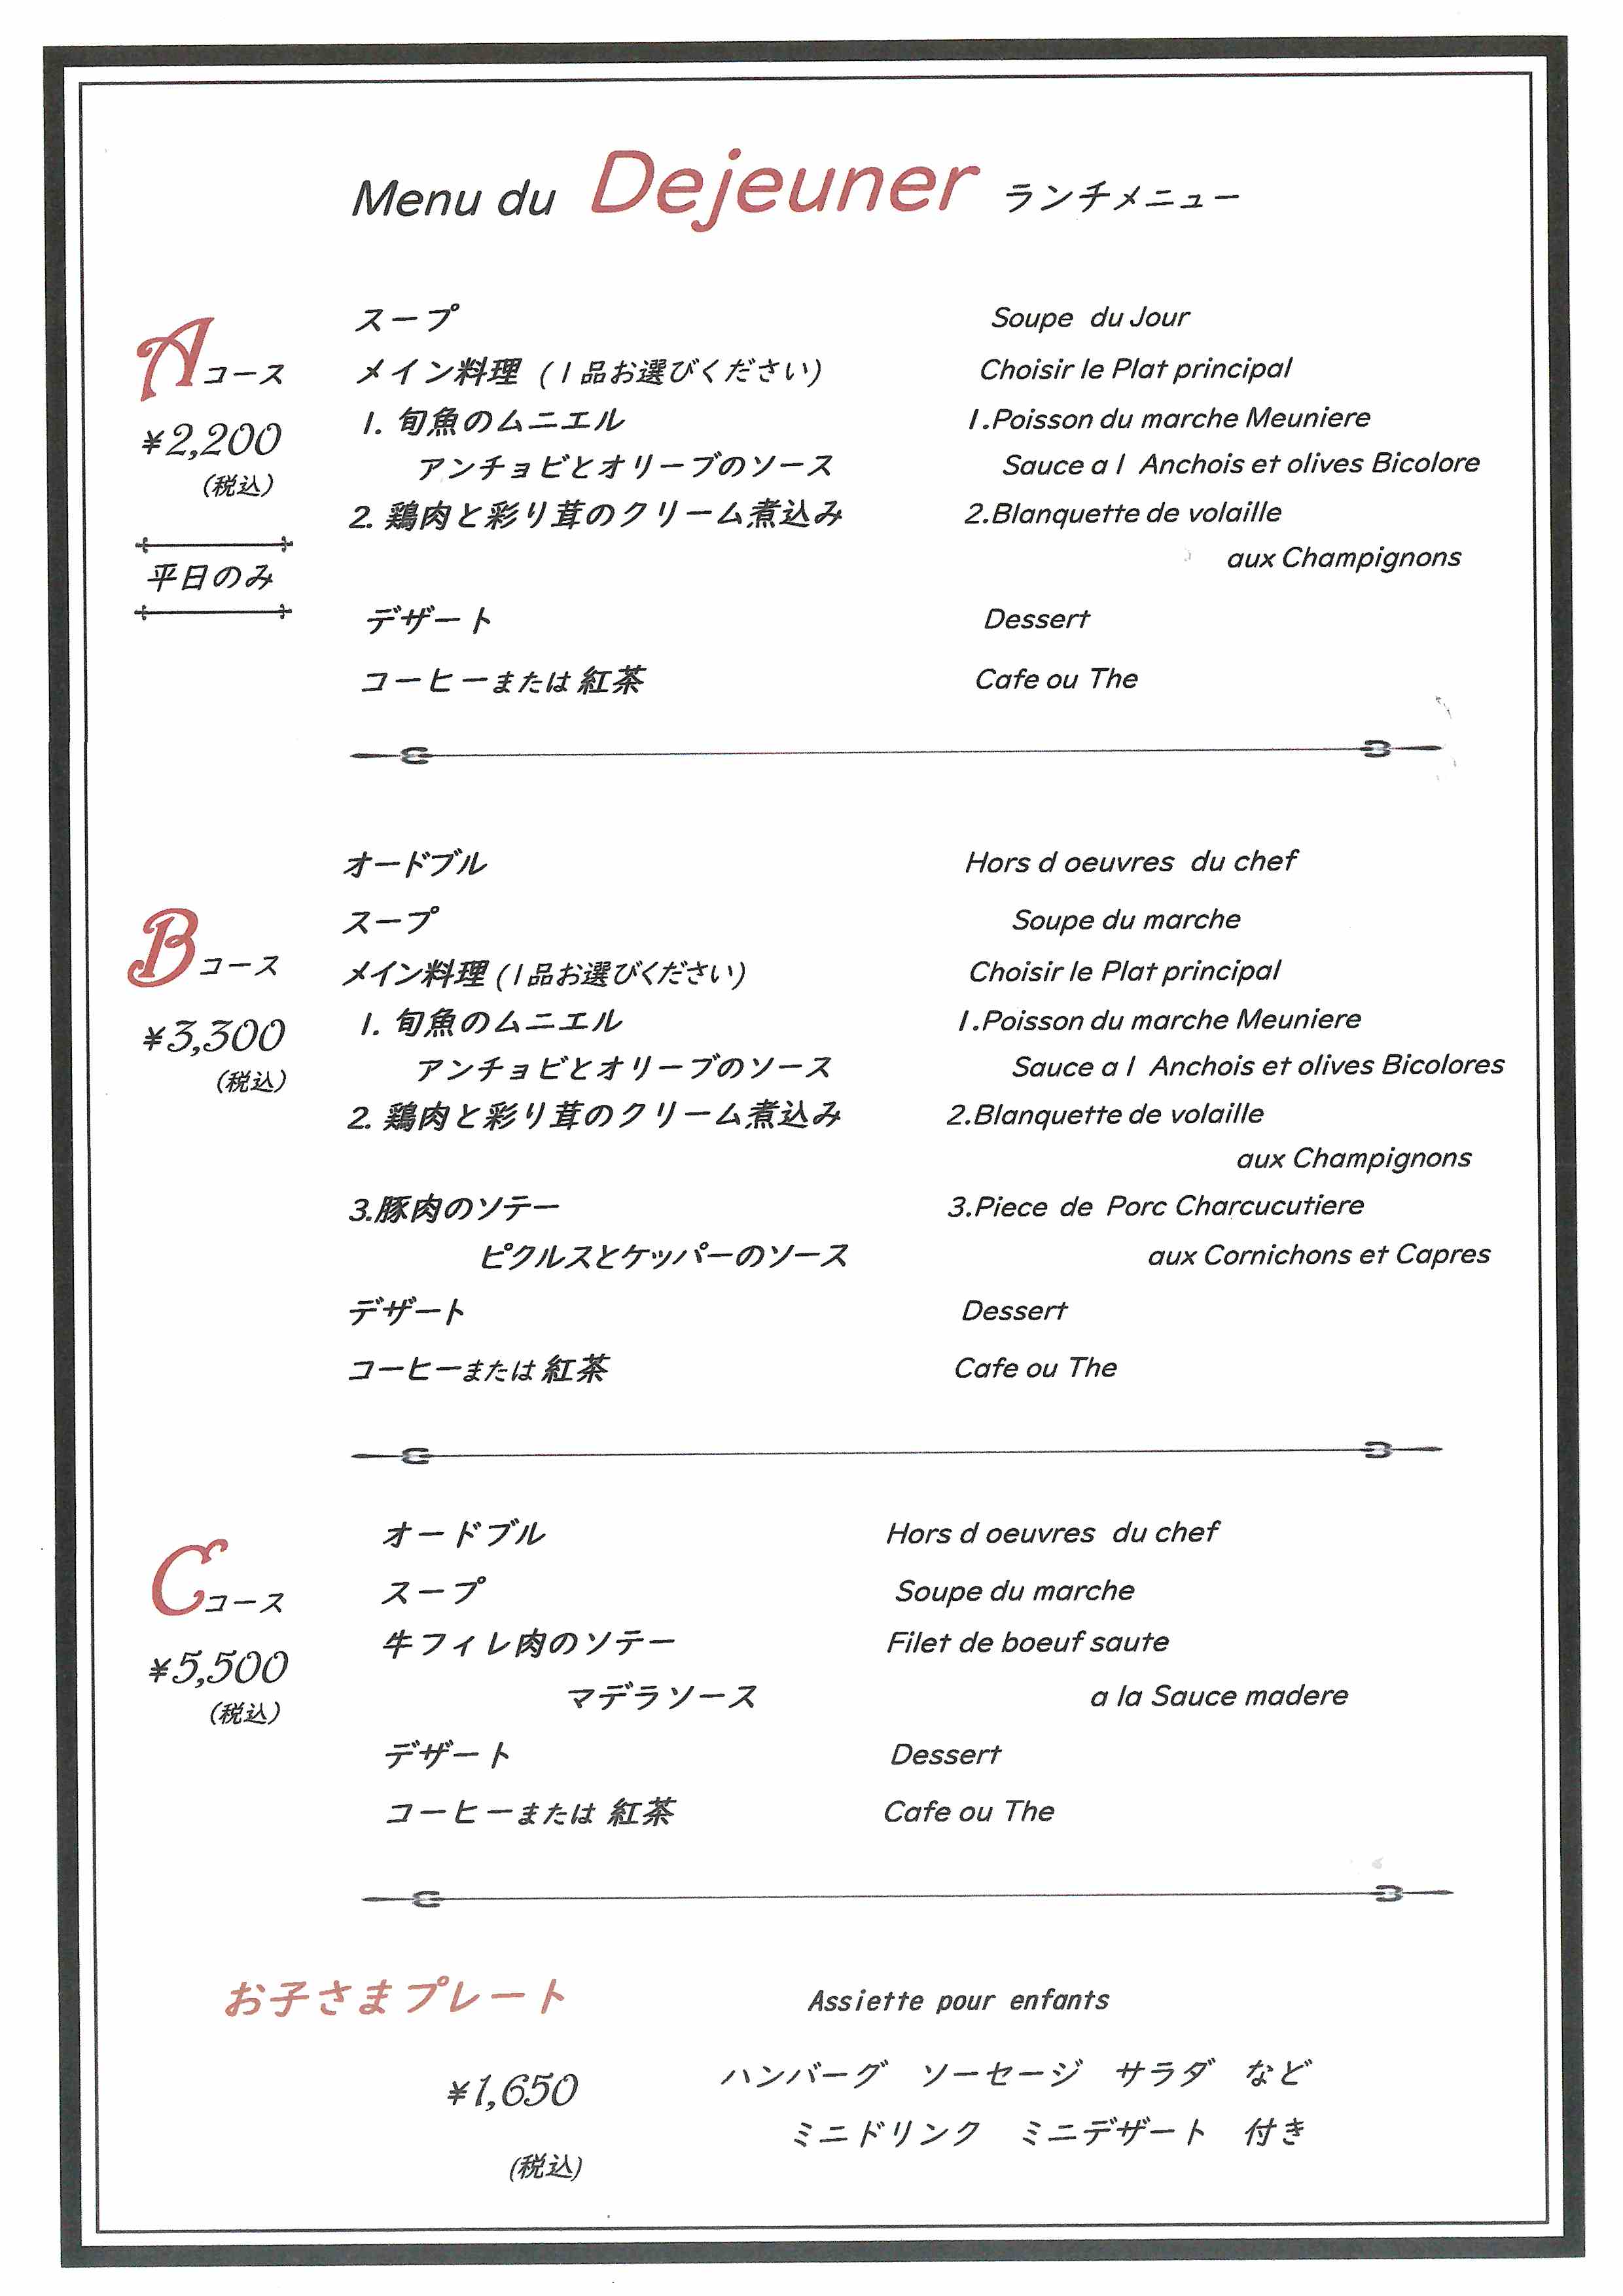 Menu du Dejeuner ランチメニュー
Aコース
¥2,200
(税込)
平日のみ
スープ Soupe du Jour
メイン料理 (1品お選びください) Choisir le Plat principal
1. 旬魚のムニエル 1.Poisson du marche Meuniere
アンチョビとオリーブのソース Sauce a l Anchois et olives Bicolore
2. 鶏肉と彩り茸のクリーム煮込み 2.Blanquette de volaille
aux Champignons
デザート Dessert
コーヒーまたは紅茶 Cafe ou The
Bコース
¥3,300
(税込)
オードブル Hors d oeuvres du chef
スープ Soupe du marche
メイン料理 (1品お選びください) Choisir le Plat principal
1. 旬魚のムニエル 1.Poisson du marche Meuniere
アンチョビとオリーブのソース Sauce a l Anchois et olives Bicolores
2. 鶏肉と彩り茸のクリーム煮込み 2.Blanquette de volaille
aux Champignons
3.豚肉のソテー 3.Piece de Porc Charcucutiere
ピクルスとケッパーのソース aux Cornichons et Capres
デザート Dessert
コーヒーまたは紅茶 Cafe ou The
Cコース
¥5,500
(税込)
オードブル Hors d oeuvres du chef
スープ Soupe du marche
牛フィレ肉のソテー Filet de boeuf saute
マデラソース a la Sauce madere
デザート Dessert
コーヒーまたは 紅茶 Cafe ou The
お子さまプレート Assiette pour enfants
¥1,650
(税込)
ハンバーグ ソーセージ サラダ など
ミニドリンク ミニデザート 付き